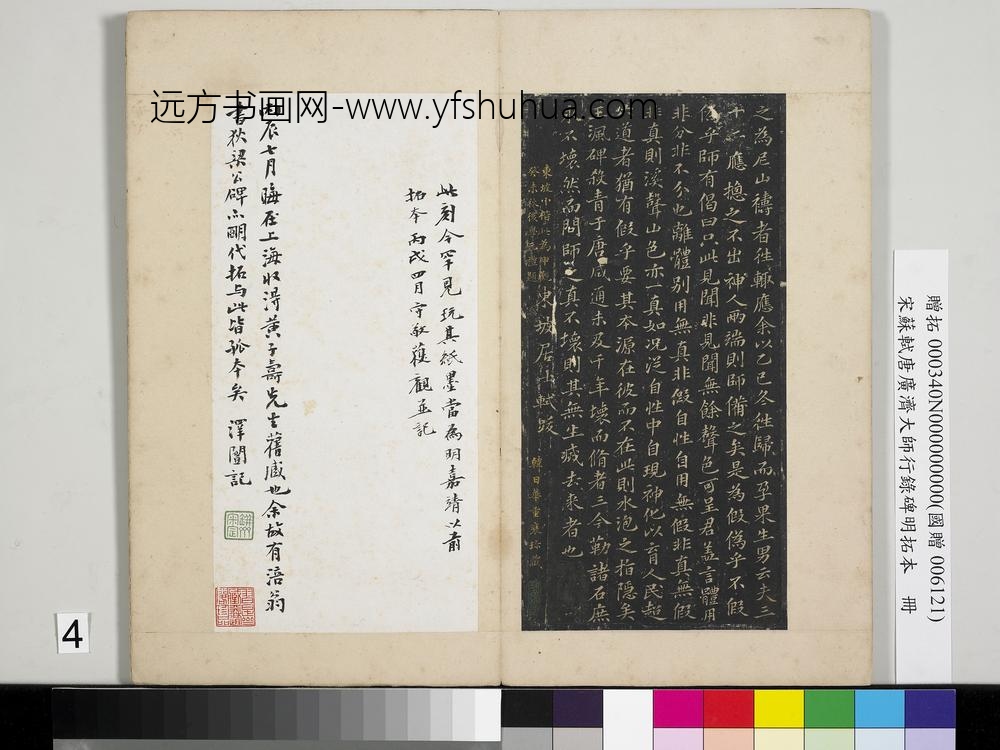 远方书画网-www.yfshuhua.com
之為尼山禱者往輙應余以乙巳冬往歸而孕果生男云夫三
應揔之不出神人兩端則師備之矣是為假偽乎不假
乎師有偈曰只此見聞非見聞無餘聲色可呈君盖言體用
非分非不分也離體別用無真非假自性自用無假非真無假
非真則溪聲山色亦一真如況從自性中自現神化以育人民起
道者猶有假乎要其本源在彼而不在此則水泡之指隱矣
渢碑殺青于唐咸通未及千年壞而脩者三今勒諸石庶
不壞然而問師之真不壞則其無生滅去來者也
東坡居士軾跋
東坡小楷此為
韓日華重裝珍藏
此刻今罕見玩其紙墨當為明嘉靖以前
拓本丙戌四月守敬獲觀並記
丙辰七月晦在上海收得黃子壽先生舊藏也余故有涪翁
書狄梁公碑亦明代拓与此皆孤本矣 澤闓記
贈拓 000340N000000000(國贈 006121)
宋蘇軾唐廣濟大師行錄碑明拓本 冊
4